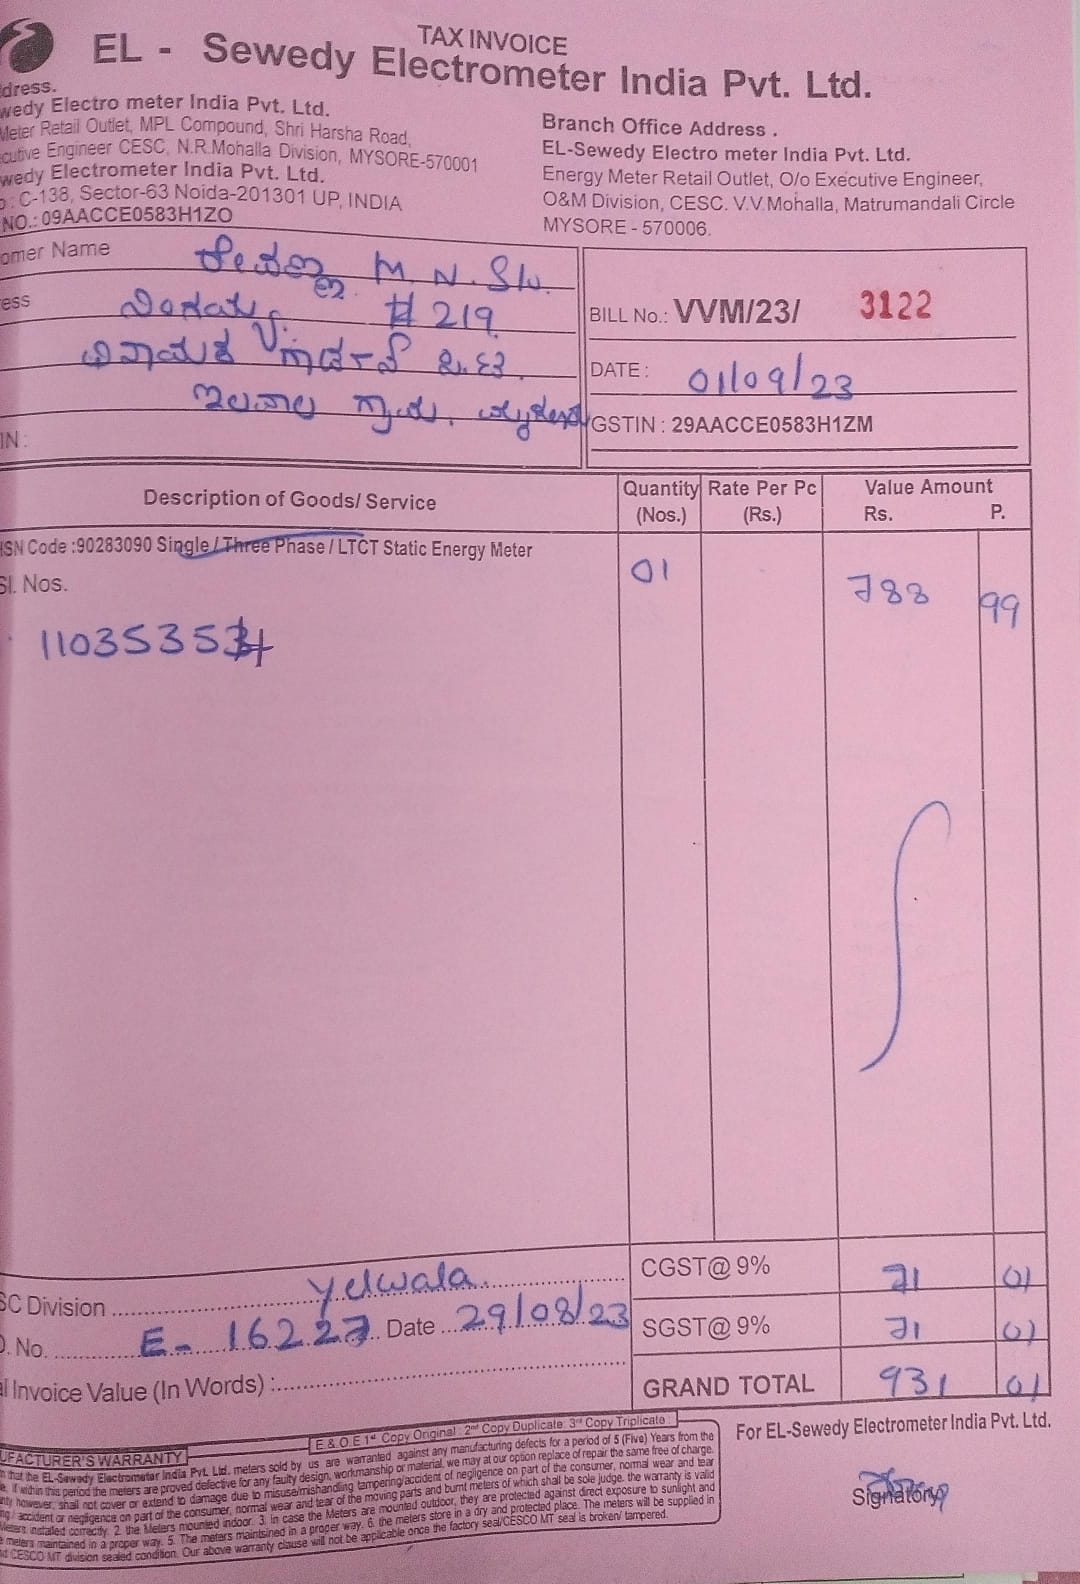 TAX INVOICE
EL - Sewedy Electrometer India Pvt. Ltd.
dress.
wedy Electro meter India Pvt. Ltd.
Meter Retail Outlet, MPL Compound, Shri Harsha Road,
cutive Engineer CESC, N.R.Mohalla Division, MYSORE-570001
wedy Electrometer India Pvt. Ltd.
: C-138, Sector-63 Noida-201301 UP, INDIA
NO.: 09AACCE0583H1ZO
Branch Office Address .
EL-Sewedy Electro meter India Pvt. Ltd.
Energy Meter Retail Outlet, O/o Executive Engineer,
O&M Division, CESC. V.V.Mohalla, Matrumandali Circle
MYSORE - 570006.
omer Name M. N. S/o.
ess # 219
IN :
BILL No.: VVM/23/ 3122
DATE : 01/09/23
GSTIN : 29AACCE0583H1ZM
Description of Goods/ Service
Quantity (Nos.)
Rate Per Pc (Rs.)
Value Amount
Rs. P.
HSN Code :90283090 Single / Three Phase / LTCT Static Energy Meter
01
788 99
Sl. Nos.
SC Division Yelwala
No. E- 16227 Date 29/08/23
l Invoice Value (In Words) :
CGST@ 9% 71 01
SGST@ 9% 71 01
GRAND TOTAL 931 01
E.& O.E 1st Copy Original : 2nd Copy Duplicate 3rd Copy Triplicate :
For EL-Sewedy Electrometer India Pvt. Ltd.
Signatory
UFACTURER'S WARRANTY
that the EL-Sewedy Electrometer India Pvt. Ltd. meters sold by us are warranted against any manufacturing defects for a period of 5 (Five) Years from the
e. If within this period the meters are proved defective for any faulty design, workmanship or material, we may at our option replace of repair the same free of charge.
nty however, shall not cover or extend to damage due to misuse/mishandling tampering/accident of negligence on part of the consumer, normal wear and tear
ng / accident or negligence on part of the consumer, normal wear and tear of the moving parts and burnt meters of which shall be sole judge. the warranty is valid
Meters installed correctly. 2. the Meters mounted indoor. 3. in case the Meters are mounted outdoor, they are protected against direct exposure to sunlight and
e meters maintained in a proper way. 5. The meters maintsined in a proper way. 6. the meters store in a dry and protected place. The meters will be supplied in
d CESCO MT division sealed condition. Our above warranty clause will not be applicable once the factory seal/CESCO MT seal is broken/ tampered.